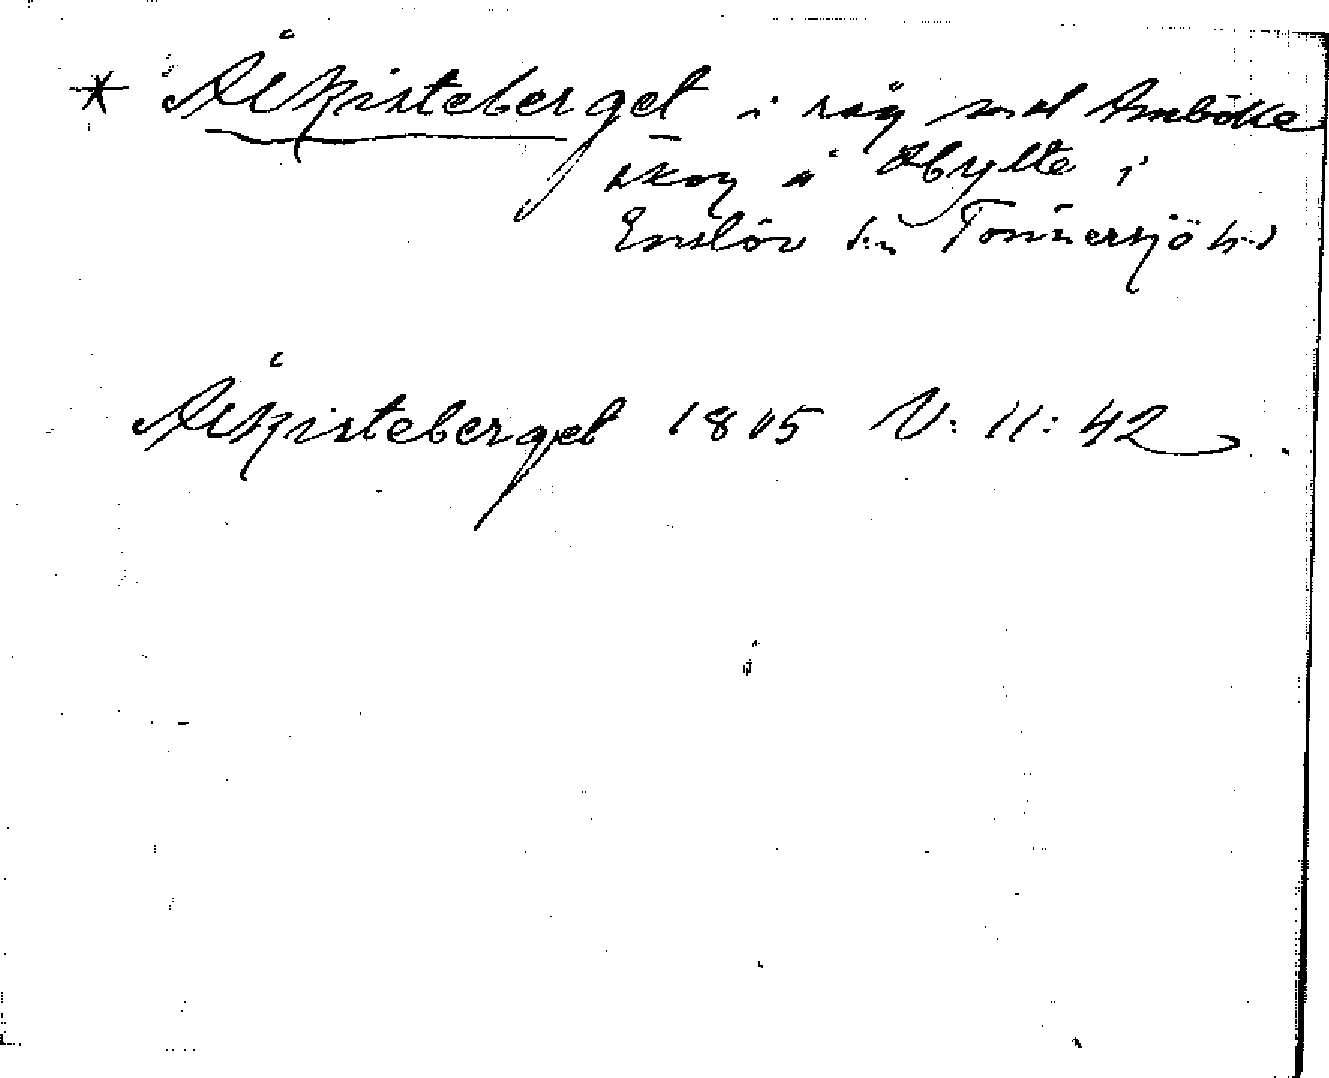 * Ålkisteberget i råg med Amböke
skog å Abylte i
Enslöv sn Tönnersjö hd
Ålkisteberget 1805 V: 11: 42